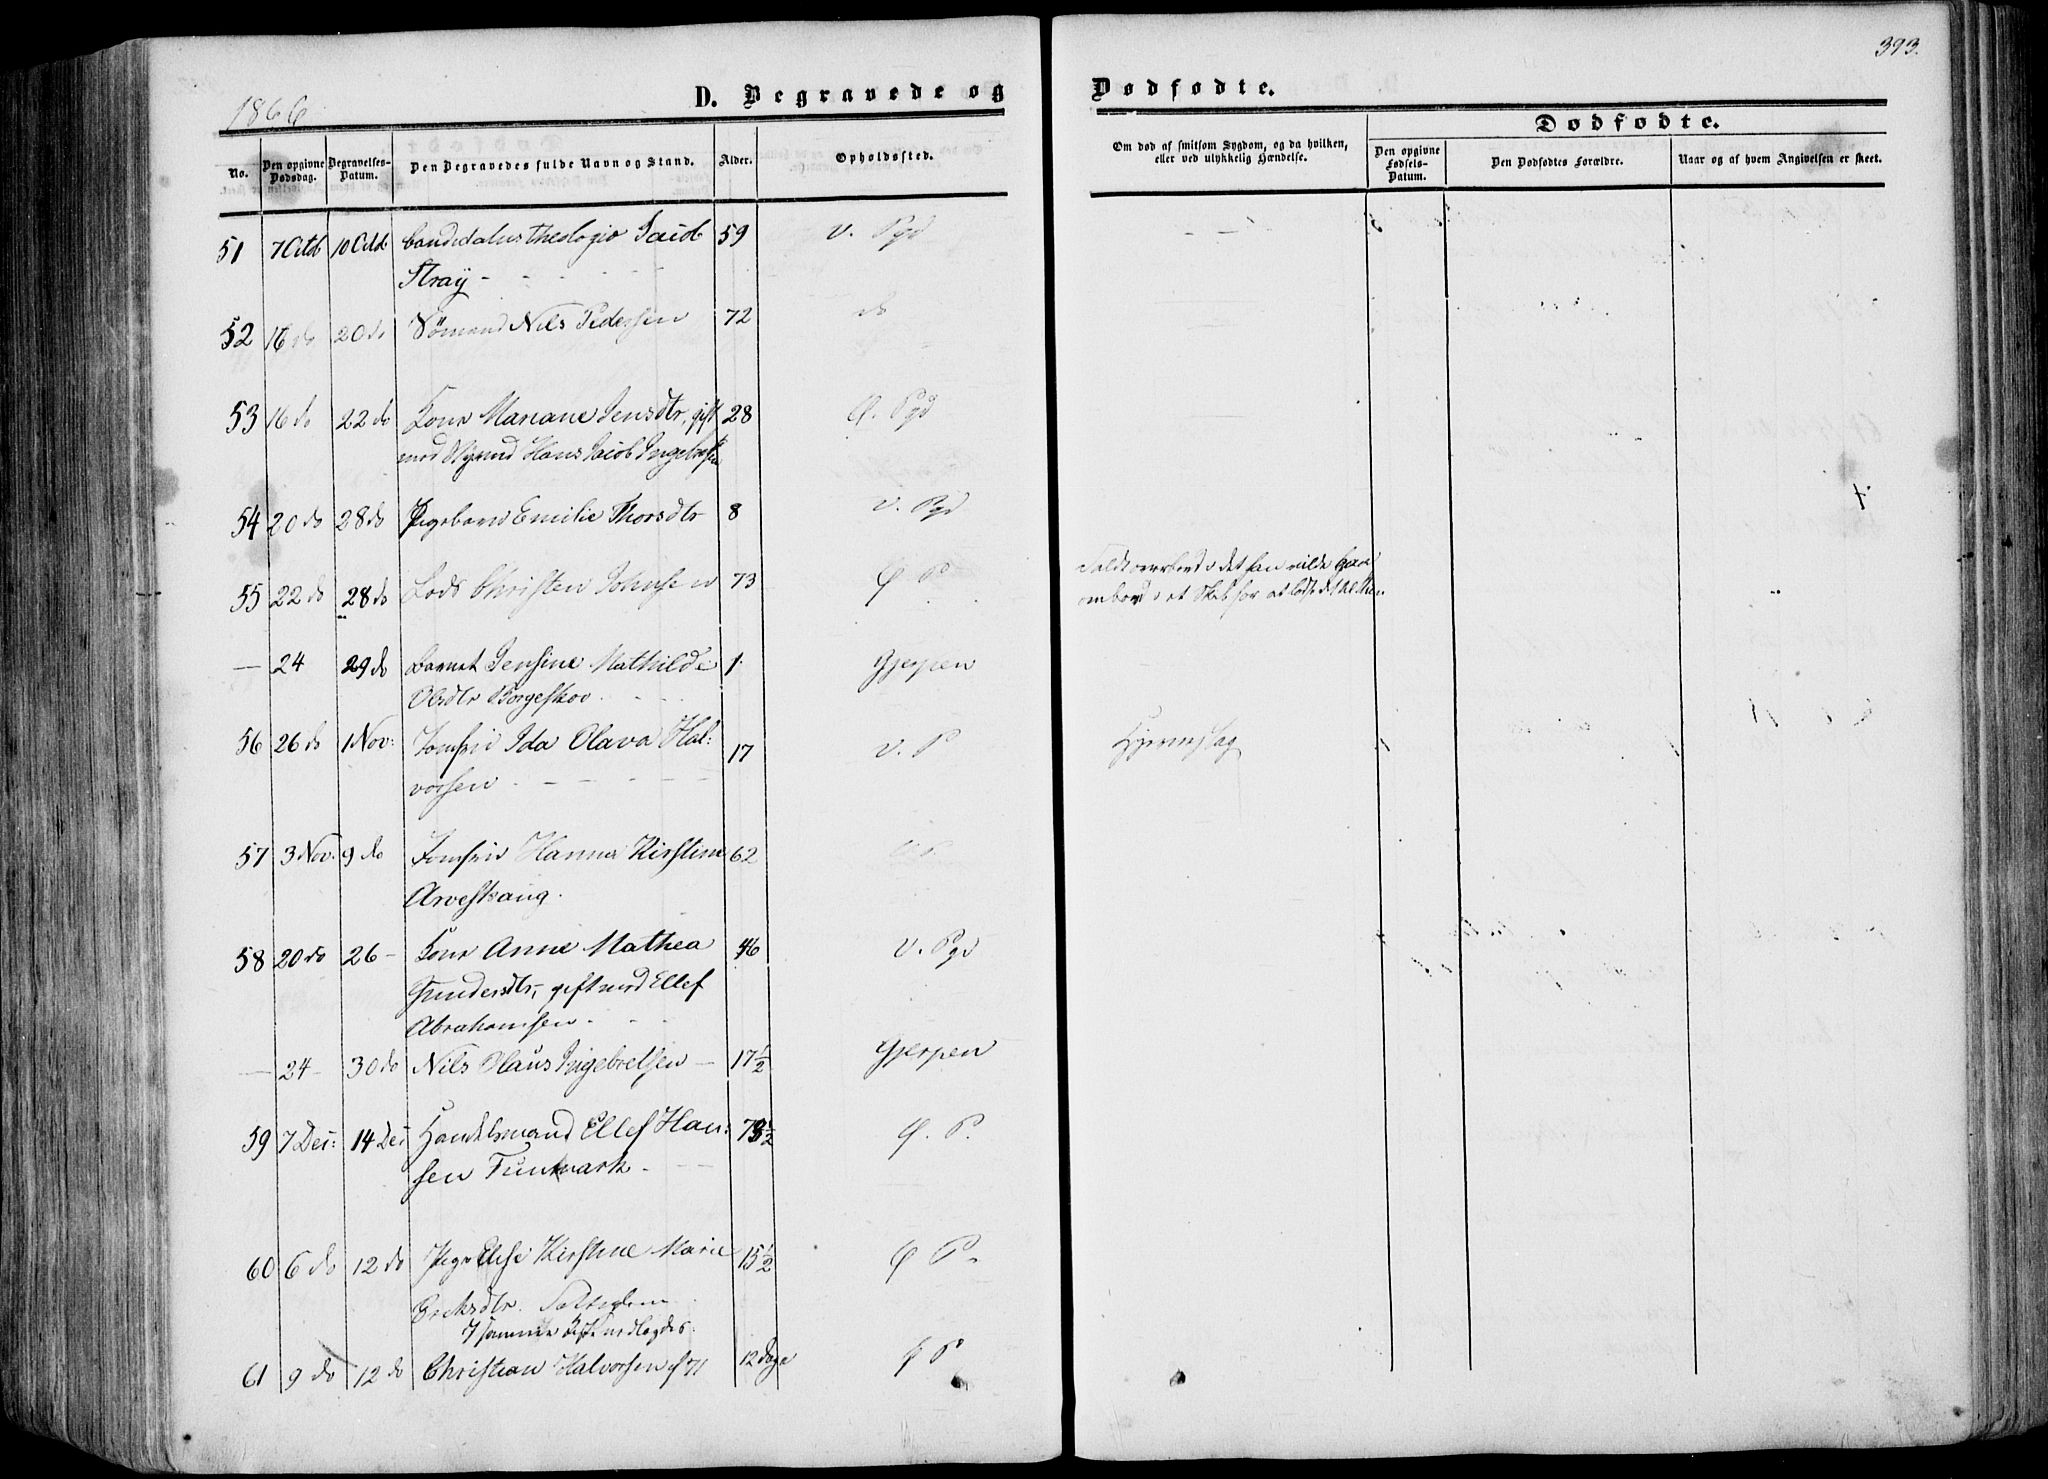 393.
1866
D. Begravede og Dødfødte.
No.
Den opgivne Dødsdag.
Begravelses-Datum.
Den Begravedes fulde Navn og Stand.
Alder.
Opholdssted.
Om død af smitsom Sygdom, og da hvilken, eller ved ulykkelig Hændelse.
Dødfødte.
Den opgivne Fødsels-Datum.
Den Dødfødtes Forældre.
Naar og af hvem Angivelsen er skeet.
51 7 Octb 10 Octb Candidatus theologiæ Jacob 59 V. Pgd
Stray -
52 16 do 20 do Sømand Nils Pedersen 72 do
53 16 do 22 do Kone Mariane Jensdtr, gift 28 Ø. Pgd
med Hans Jacob Ingebretsen
54 20 do 28 do Pigebarn Emilie Thorsdtr 8 V. Pgd
55 22 do 28 do Lods Christen Johnsen 73 Ø P Faldt overbord i det han vilde
ombord i et Skib for at lodse det
— 24 29 do Barnet Jensine Mathilde 1 Gjerpen
Olsdtr Borgeskov
56 26 do 1 Nov: Jomfru Ida Olava Hal: 17 V. P Hjerneslag
vorsen
57 3 Nov. 9 do Jomfru Hanna Kirstine 62
Arveskaug.
58 20 do 26 - Kone Anne Mathea 46 V. Pgd
Gundersdtr, gift med Ellef
Abrahamsen
— 24 - 30 do Nils Olaus Ingebretsen — 17 1/2 Gjerpen
59 7 Dec: 14 Dec Handelsmand Ellef Han: 73 1/2 Ø. P.
sen Funmark
60 6 do 12 do Pige Else Kirstine Marie 15 1/2 Ø P.
Eriksdtr.
61 9 do 12 do Christian Halvorsen 12 Dage Ø P